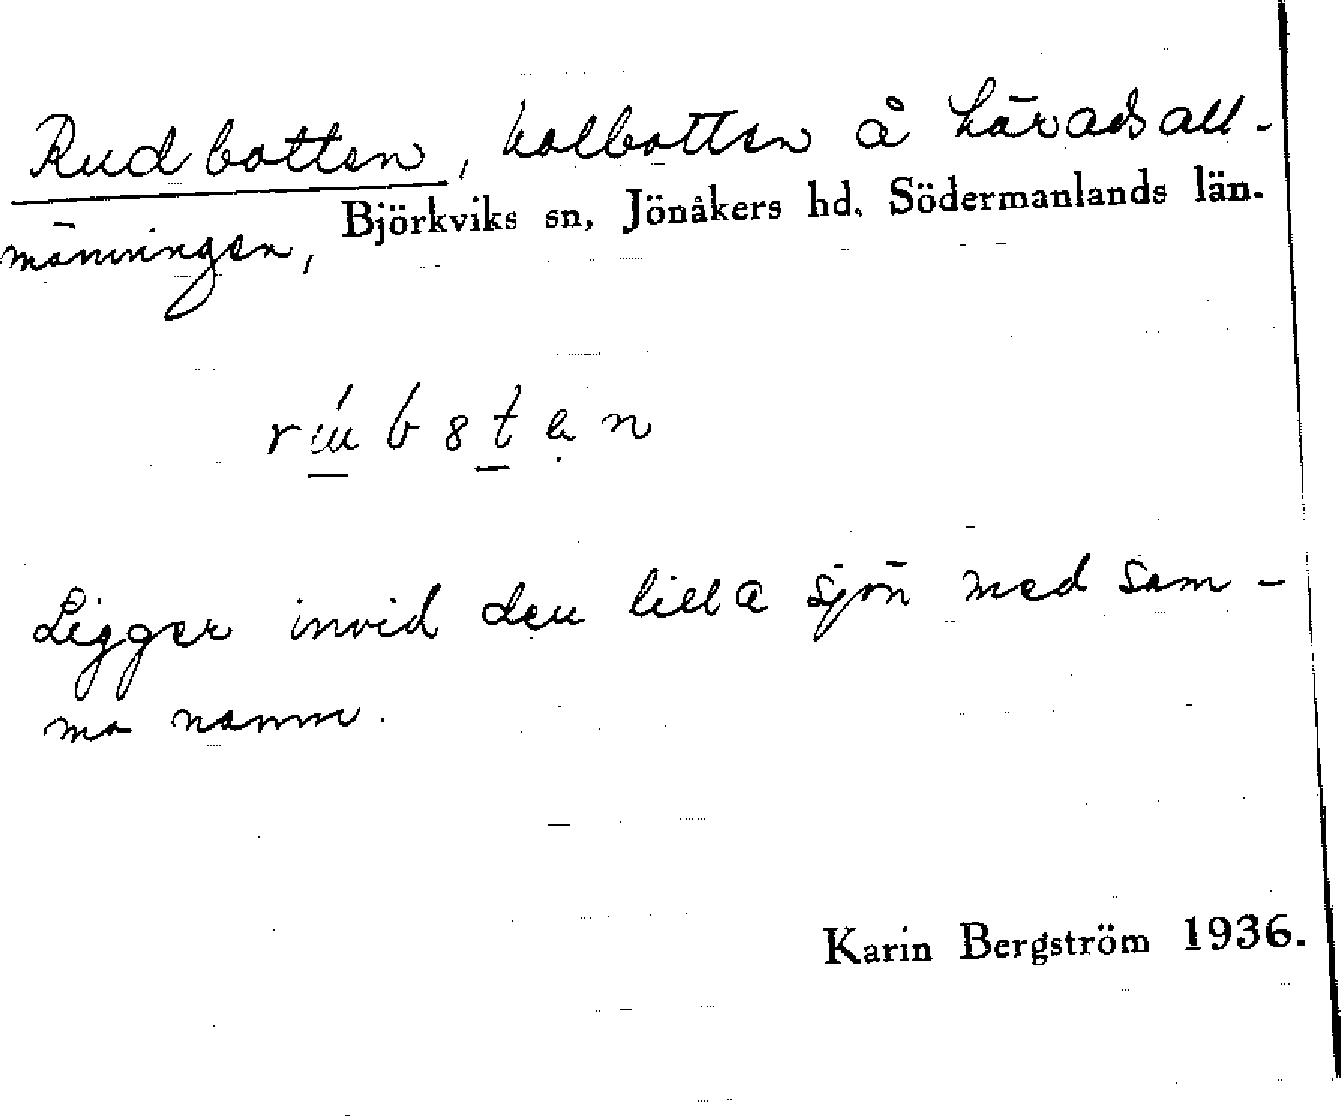 Rudbotten, kolbotten å häradsall-
männingen, Björkviks sn, Jönåkers hd. Södermanlands län.
Ligger invid den lilla sjön med sam-
ma namn.
Karin Bergström 1936.